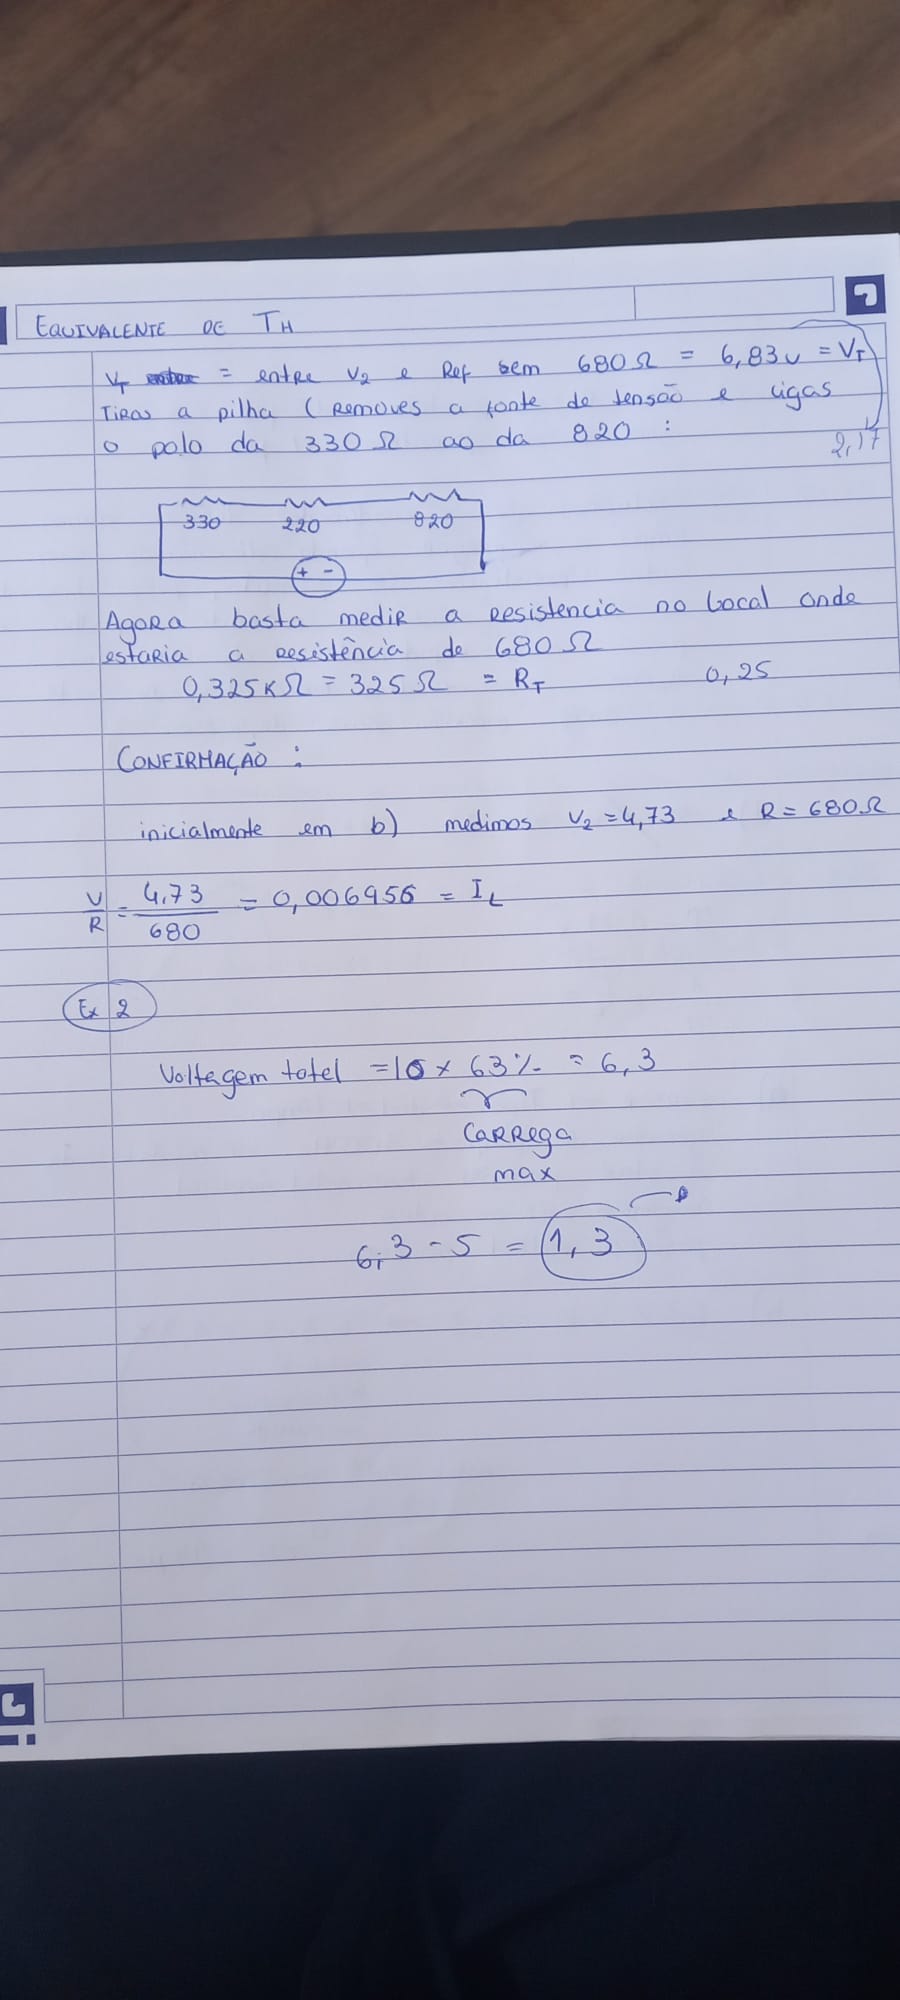 EQUIVALENTE DE TH
VT = entre V2 e Ref sem 680Ω = 6,83v = VT
Tiras a pilha (Removes a fonte de tensão e ligas
o polo da 330Ω ao da 820 :
2,17
330 220 820
+ -
Agora basta medir a resistencia no local onde
estaria a resistência de 680Ω
0,325KΩ = 325Ω = RT 0,25
CONFIRMAÇÃO :
inicialmente em b) medimos V2=4,73 e R=680Ω
V/R = 4,73/680 = 0,006956 = IL
Ex 2
Voltagem totel = 10 x 63% = 6,3
Carrega
max
6,3 - 5 = 1,3